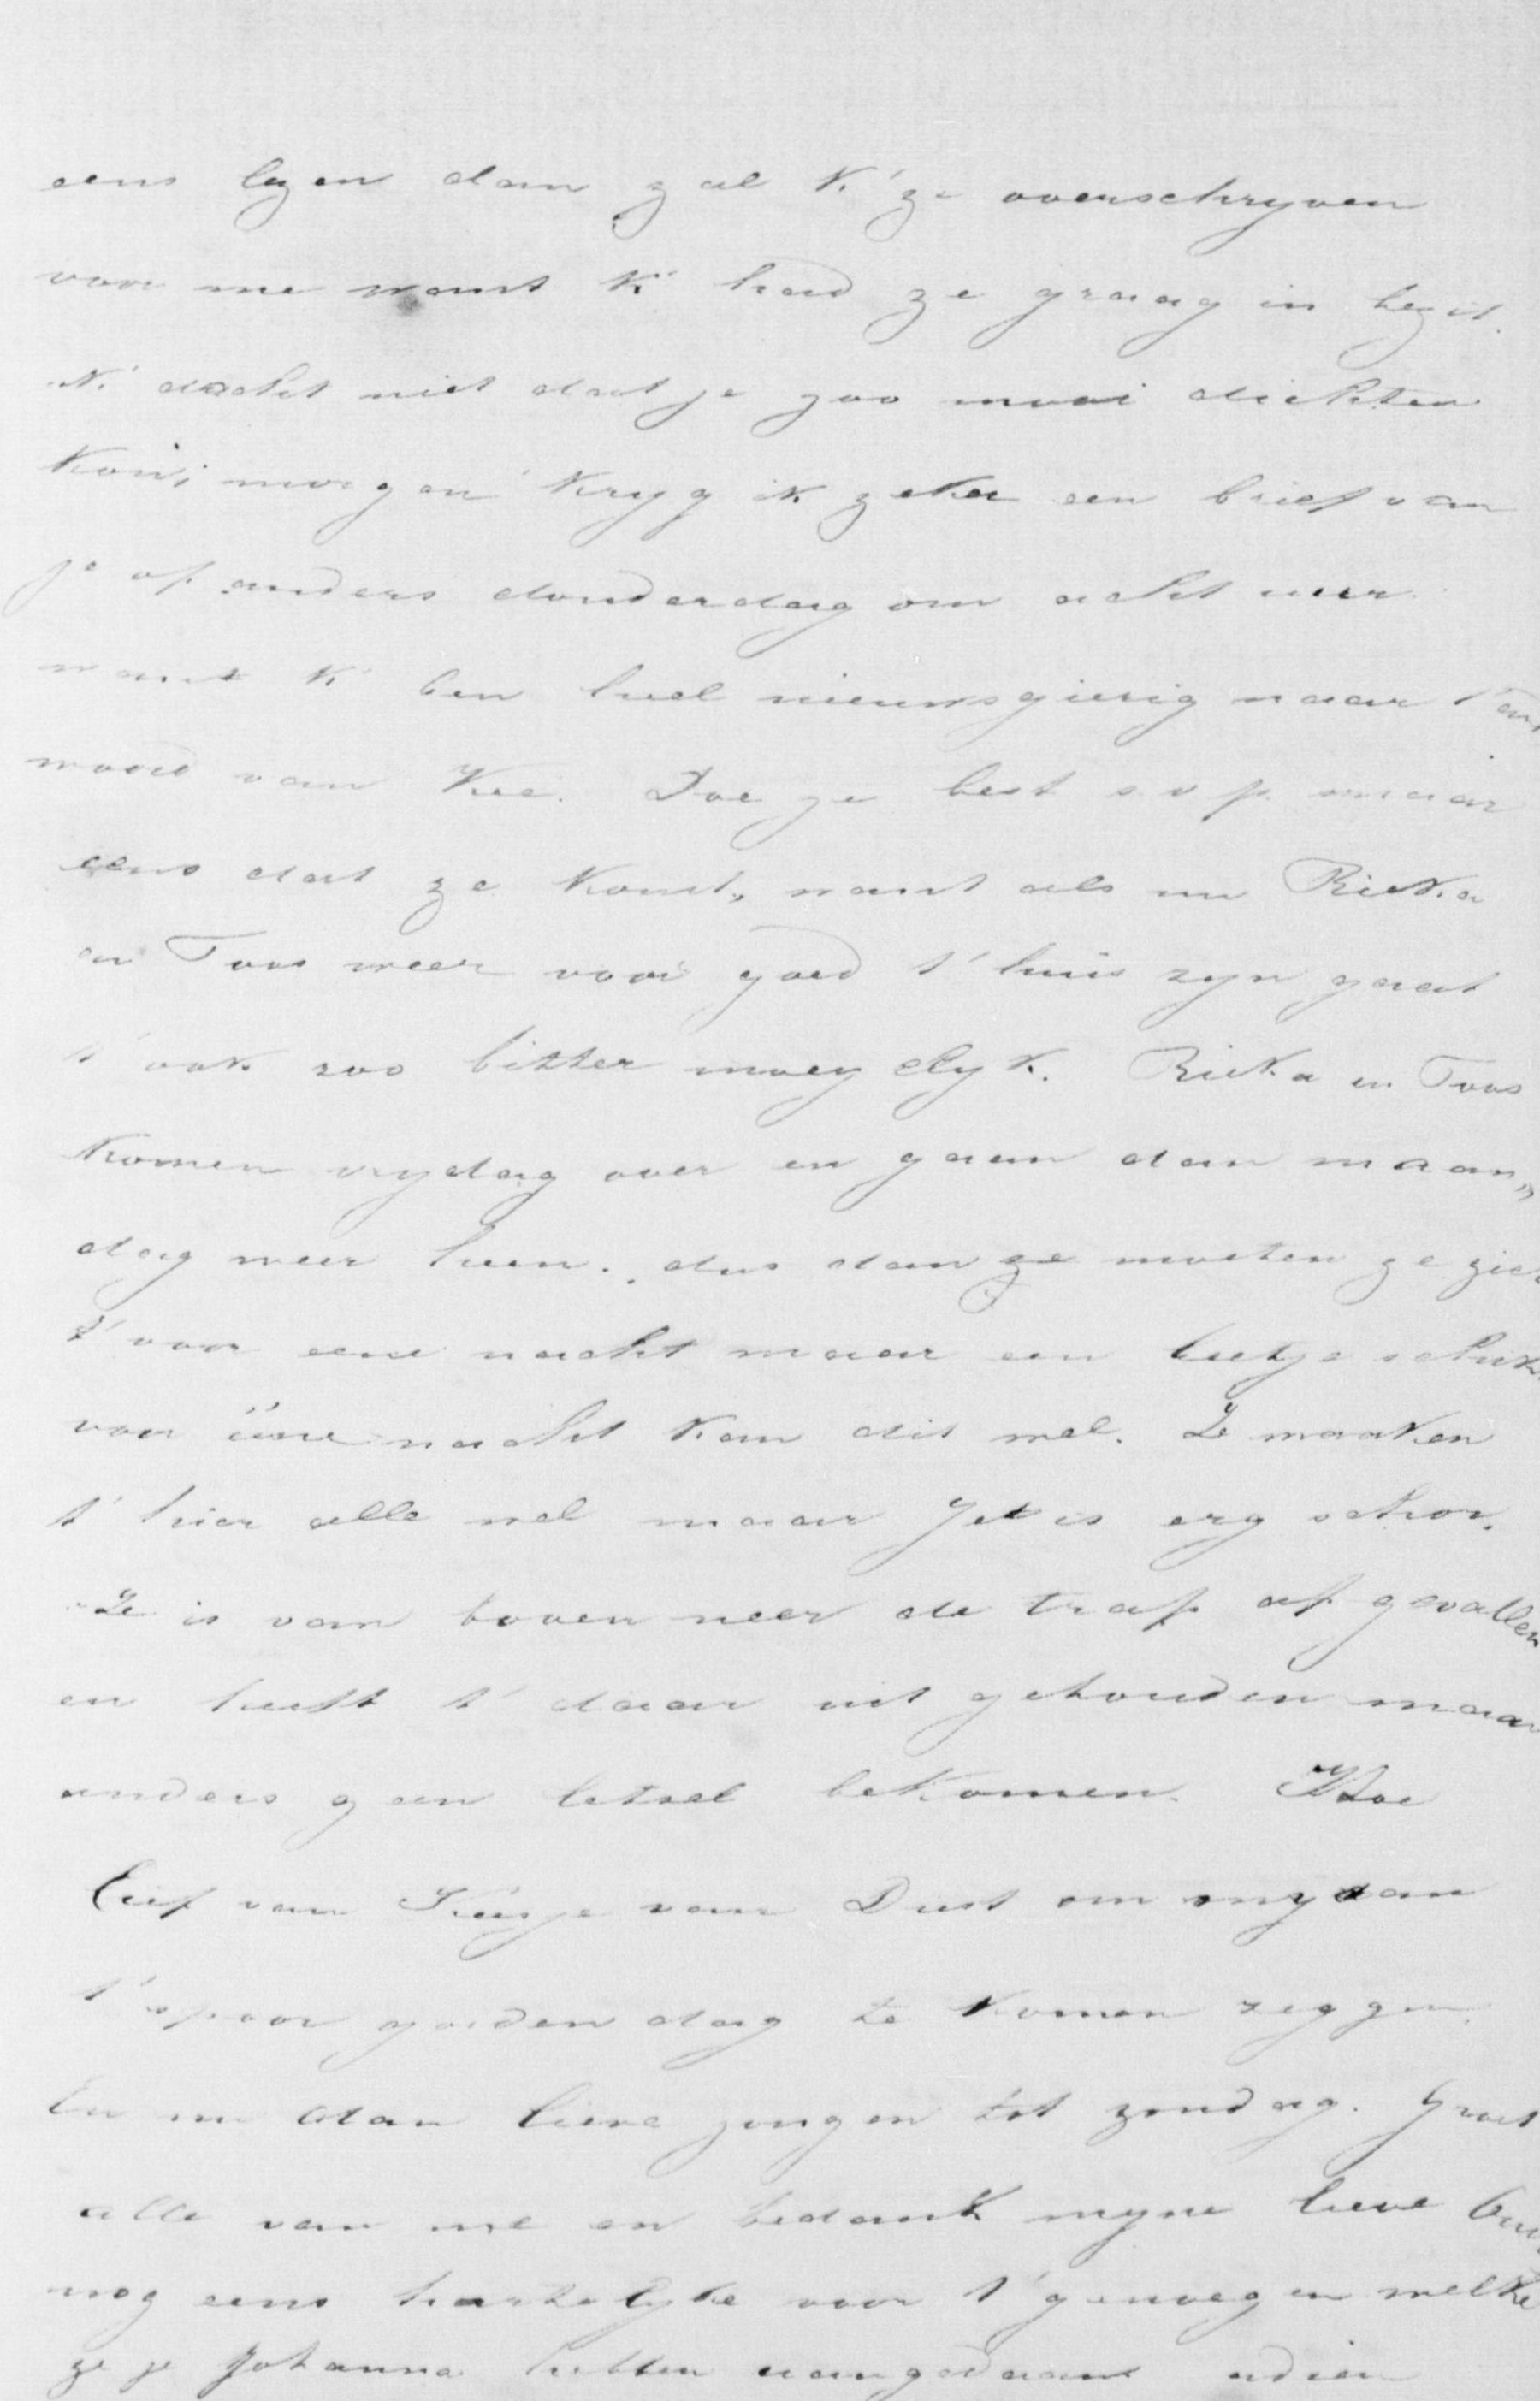 eens lezen dan zal k' ze overschryven
voor me want k' had ze graag in bezit.
k' dacht niet dat je zoo mooi dichten
kon; morgen kryg ik zeker een brief van
je of anders donderdag om acht uur
want k' ben heel nieuwsgierig naar t' ant
woord van Kee. Doe je best s v p. maar
eens dat ze komt, want als nu Rieka
en Toos weer voor goed t' huis zyn gaat
t' ook zoo bitter moeyelyk. Rieka en Toos
komen vrydag over en gaan dan maan„
dag weer heen. dus dan moeten ze zich
t' voor eene nacht maar een beetje schik
voor ééne nacht kan dit wel. Ze maaken
t' hier alle wel maar Jet is erg schor.
Ze is van boven neer de trap af gevallen
en heeft t' daar uit gehouden maar
anders geen letsel bekomen. Hoe
lief van Keesje van Dust om my aan
t' spoor goeden dag te komen zeggen.
En nu dan lieve jongen tot zondag. Groet
alle van me en bedank myne lieve
nog eens hartelyke voor t' genoegen welke
ze je Johanna hebben aangedaan adieu